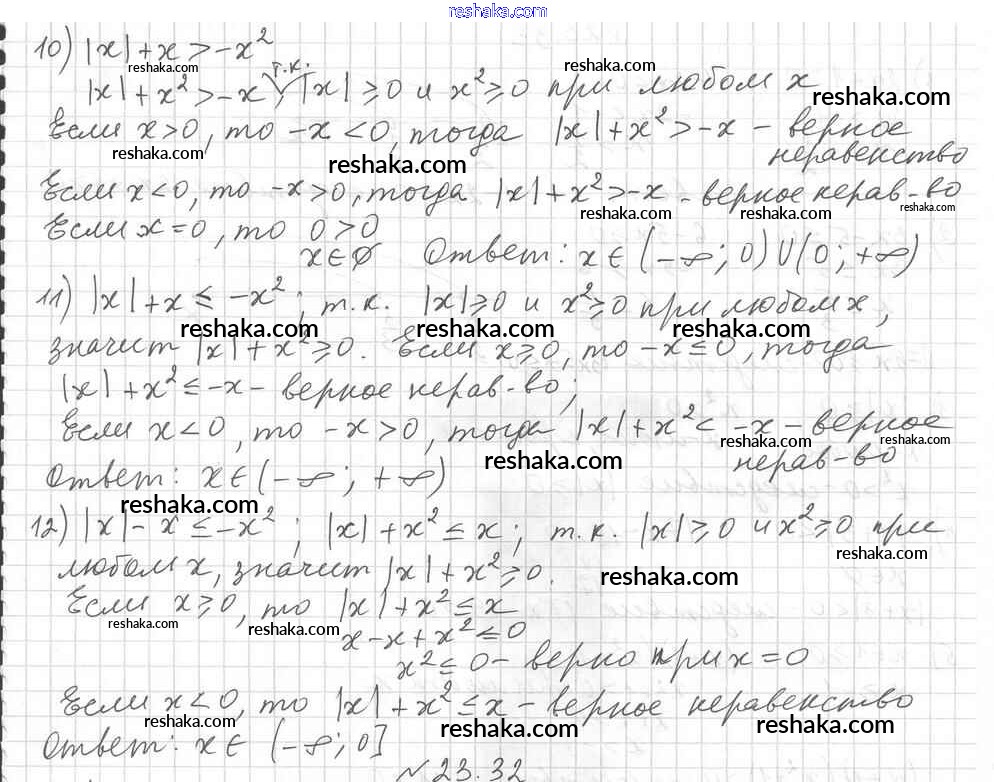 reshaka.com
10) |x| + x > -x²
reshaka.com
т.к.
reshaka.com
|x| + x² > -x, |x| ≥ 0 и x² ≥ 0 при любом x
reshaka.com
reshaka.com
Если x > 0, то -x < 0, тогда |x| + x² > -x - верное
reshaka.com
неравенство
reshaka.com
Если x < 0, то -x > 0, тогда |x| + x² > -x - верное нерав-во
reshaka.com reshaka.com reshaka.com
Если x = 0, то 0 > 0
x ∈ ∅ Ответ: x ∈ (-∞; 0) ∪ (0; +∞)
11) |x| + x ≤ -x²; т.к. |x| ≥ 0 и x² ≥ 0 при любом x,
reshaka.com reshaka.com reshaka.com
значит |x| + x² ≥ 0. Если x ≥ 0, то -x ≤ 0, тогда
|x| + x² ≤ -x - верное нерав-во;
Если x < 0, то -x > 0, тогда |x| + x² < -x - верное
reshaka.com reshaka.com
reshaka.com
нерав-во
Ответ: x ∈ (-∞; +∞)
reshaka.com
12) |x| - x ≤ -x²; |x| + x² ≤ x; т.к. |x| ≥ 0 и x² ≥ 0 при
reshaka.com
любом x, значит |x| + x² ≥ 0.
reshaka.com
Если x ≥ 0, то |x| + x² ≤ x
reshaka.com reshaka.com
x - x + x² ≤ 0
x² ≤ 0 - верно при x = 0
Если x < 0, то |x| + x² ≤ x - верное неравенство
reshaka.com reshaka.com reshaka.com
Ответ: x ∈ (-∞; 0]
reshaka.com
№23.32